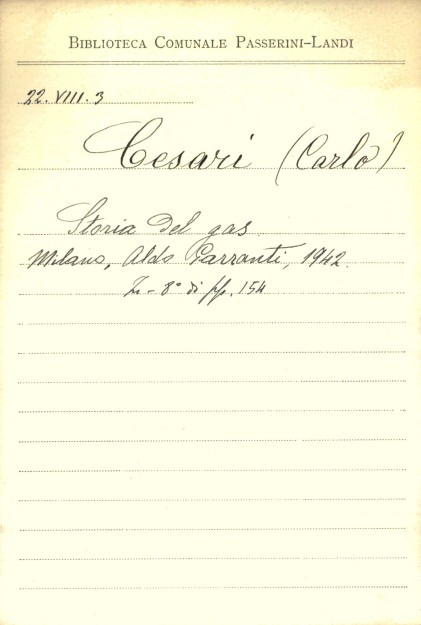 BIBLIOTECA COMUNALE PASSERINI–LANDI
22. VIII. 3
Cesari (Carlo)
Storia del gas.
Milano, Aldo Garzanti, 1942.
In - 8° di pp. 154